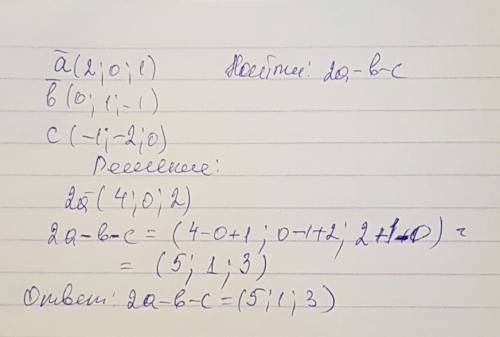 ā(2;0;1) Найти: 2a-в-c
в̄(0;1;-1)
c(-1;-2;0)
Решение:
2ā(4;0;2)
2a-в-c = (4-0+1; 0-1+2; 2+1-0) =
= (5;1;3)
Ответ: 2a-в-c=(5;1;3)